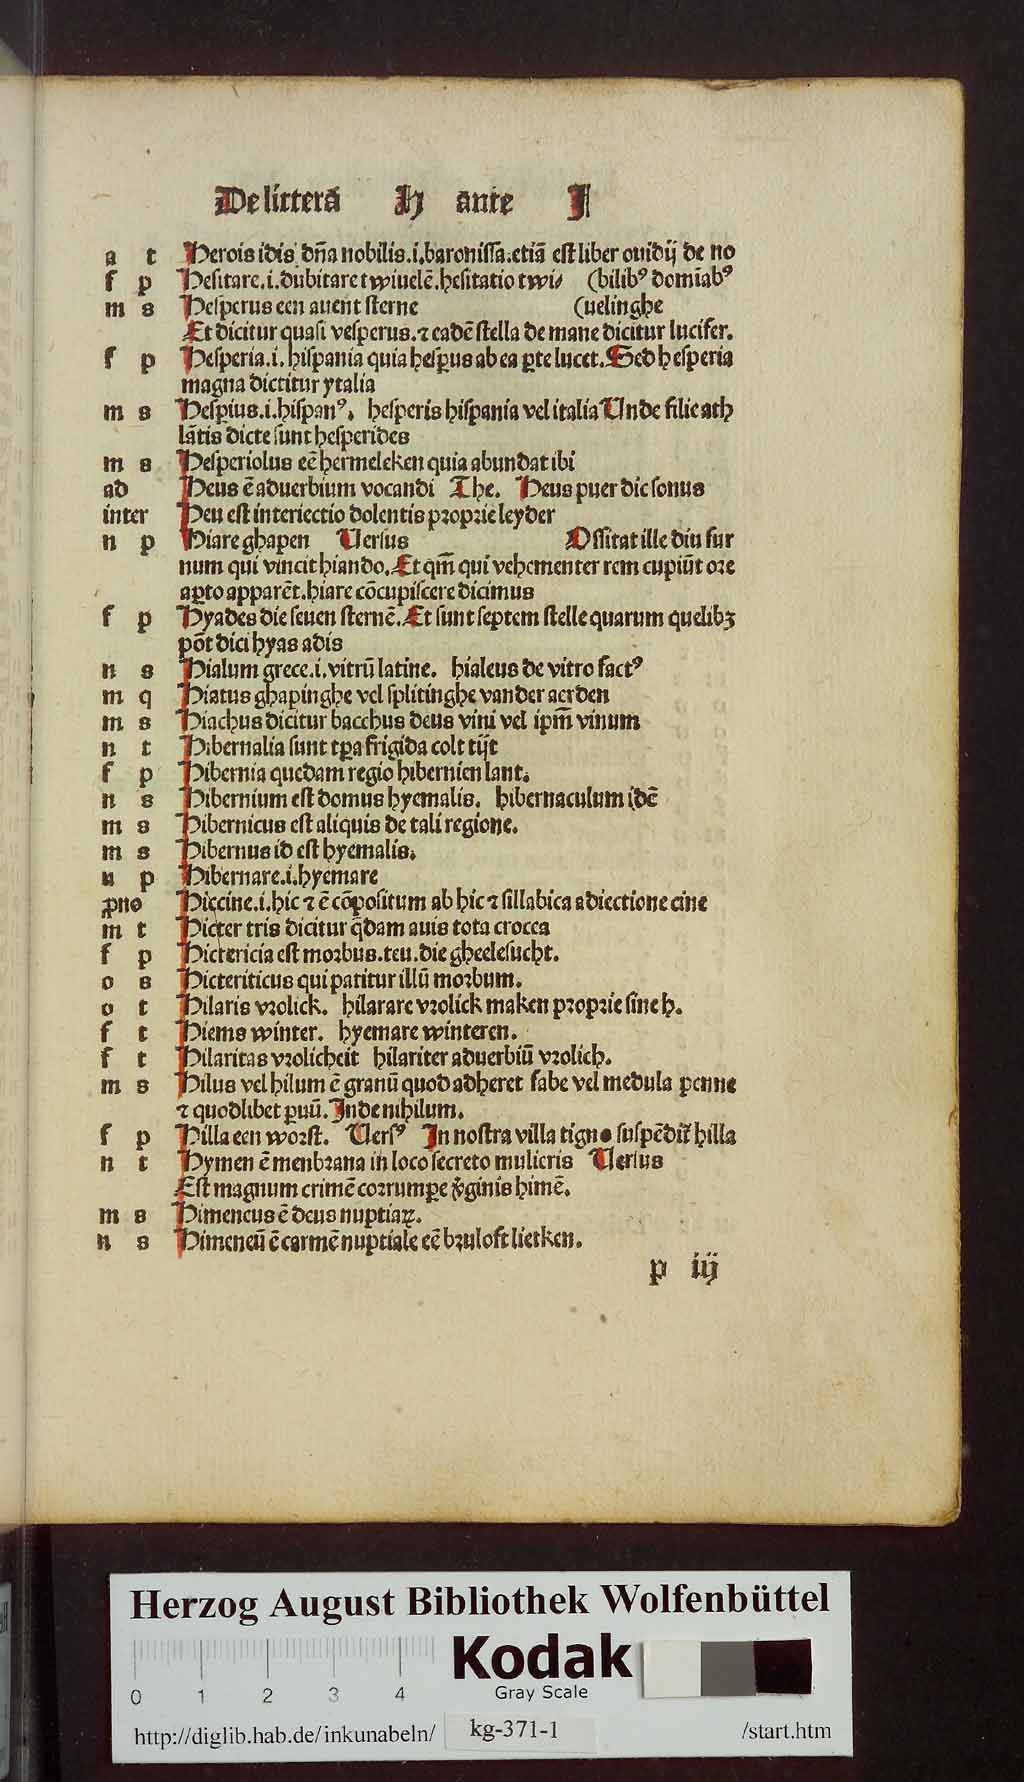 De litterā H ante I
a t Herois idis dn̄a nobilis.i.baronissa:etiā est liber ouidij de no
f p Hesitare.i.dubitare twiuelē.hesitatio twi⸗ (bilibꝰ domīabꝰ
m s Hesperus een auent sterne (uelinghe
Et dicitur quasi vesperus.⁊ eadē stella de mane dicitur lucifer.
f p Hesperia.i.hispania quia hesꝑus ab ea ꝑte lucet.Sed hesperia
magna dictitur ytalia
m s Hesꝑius.i.hispanꝰ. hesperis hispania vel italia Unde filie ath
lātis dicte sunt hesperides
m s Hesperiolus eē hermeleken quia abundat ibi
ad Heus ē aduerbium vocandi The. Heus puer dic sonus
inter Heu est interiectio dolentis proprie leyder
n p Hiare ghapen Uersus Ossitat ille diu sur
num qui vincit hiando.Et qm̄ qui vehementer rem cupiūt ore
aꝑto apparēt.hiare cōcupiscere dicimus
f p Hyades die seuen sternē.Et sunt septem stelle quarum quelibꝫ
pōt dici hyas adis
n s Hialum grece.i.vitrū latine. hialeus de vitro factꝰ
m q Hiatus ghapinghe vel splitinghe vander aerden
m s Hiachus dicitur bacchus deus vini vel ipm̄ vinum
n t Hibernalia sunt tꝑa frigida colt tijt
f p Hibernia quedam regio hibernien lant.
n s Hibernium est domus hyemalis. hibernaculum idē
m s Hibernicus est aliquis de tali regione.
m s Hibernus id est hyemalis.
n p Hibernare.i.hyemare
ꝓno Hiccine.i.hic ⁊ ē cōpositum ab hic ⁊ sillabica adiectione cine
m t Hicter tris dicitur q̄dam auis tota crocea
f p Hictericia est morbus.teu.die gheelesucht.
o s Hicteriticus qui patitur illū morbum.
o t Hilaris vrolick. hilarare vrolick maken proprie sine h.
f t Hiems winter. hyemare winteren.
f t Hilaritas vrolicheit hilariter aduerbiū vrolich.
m s Hilus vel hilum ē granū quod adheret fabe vel medula penne
⁊ quodlibet ꝑuū.Inde nihilum.
f p Hilla een worst. Uersꝰ In nostra villa tigno suspēdit᷑ hilla
n t Hymen ē menbrana in loco secreto mulieris Uersus
Est magnum crimē corrumꝑe v̄ginis himē.
m s Himeneus ē deus nuptiaꝝ.
n s Himeneū ē carmē nuptiale eē bruloft lietken.
p iij
Herzog August Bibliothek Wolfenbüttel
Kodak
Gray Scale
0 1 2 3 4
http://diglib.hab.de/inkunabeln/ kg-371-1 /start.htm